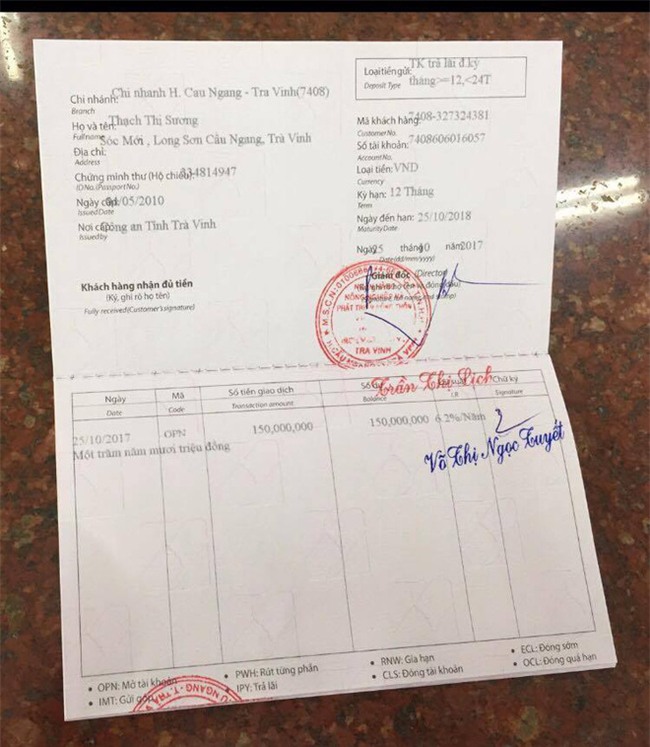 Loại tiền gửi: TK trả lãi đ.kỳ
Deposit Type tháng>=12,<24T
Chi nhánh: Chi nhanh H. Cau Ngang - Tra Vinh(7408)
Branch
Họ và tên: Thạch Thị Sương
Full name
Địa chỉ: Sóc Mới , Long Sơn Cầu Ngang, Trà Vinh
Address
Chứng minh thư (Hộ chiếu): 334814947
ID No.(Passport No.)
Ngày cấp: /05/2010
Issued Date
Nơi cấp: Công an Tỉnh Trà Vinh
Issued by
Mã khách hàng: 7408-327324381
Customer No.
Số tài khoản: 7408606016057
Account No.
Loại tiền: VND
Currency
Kỳ hạn: 12 Tháng
Term
Ngày đến hạn: 25/10/2018
Maturity Date
Ngày 25 tháng 10 năm 2017
Date(dd/mm/yyyy)
Khách hàng nhận đủ tiền
(Ký, ghi rõ họ tên)
Fully received(Customer's signature)
Giám đốc (Director)
TRA VINH
Trần Thị Lịch
Ngày Mã Số tiền giao dịch Số dư Lãi suất Chữ ký
Date Code Transaction amount Balance I.R Signature
25/10/2017 OPN 150,000,000 150,000,000 6.2%/Năm
Một trăm năm mươi triệu đồng
Võ Thị Ngọc Tuyết
• OPN: Mở tài khoản • PWH: Rút từng phần • RNW: Gia hạn • ECL: Đóng sớm
• IMT: Gửi góp • IPY: Trả lãi • CLS: Đóng tài khoản • OCL: Đóng quá hạn